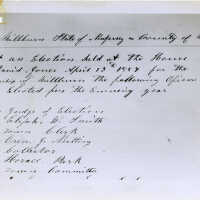 Millburn State of New Jersey County of
at an Election held at the House
David Jones April 13th 1857 for the
of Millburn the following Officers
Elected for the Ensuing year
Judge of Election
Elijah W. Smith
Town Clerk
Owen J. Melling
Collector
Horace Park
Town Committee